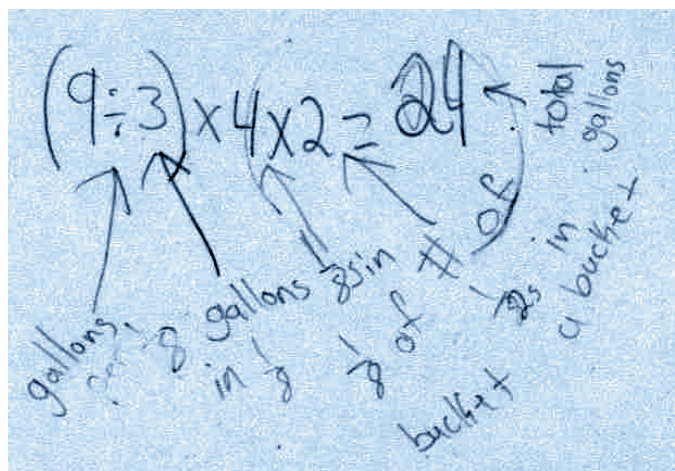 (9÷3)×4×2=24
total
gallons
gallons
gallons
in 1/8
1/8s in
1/8 of
bucket
# of
1/2s in
a bucket